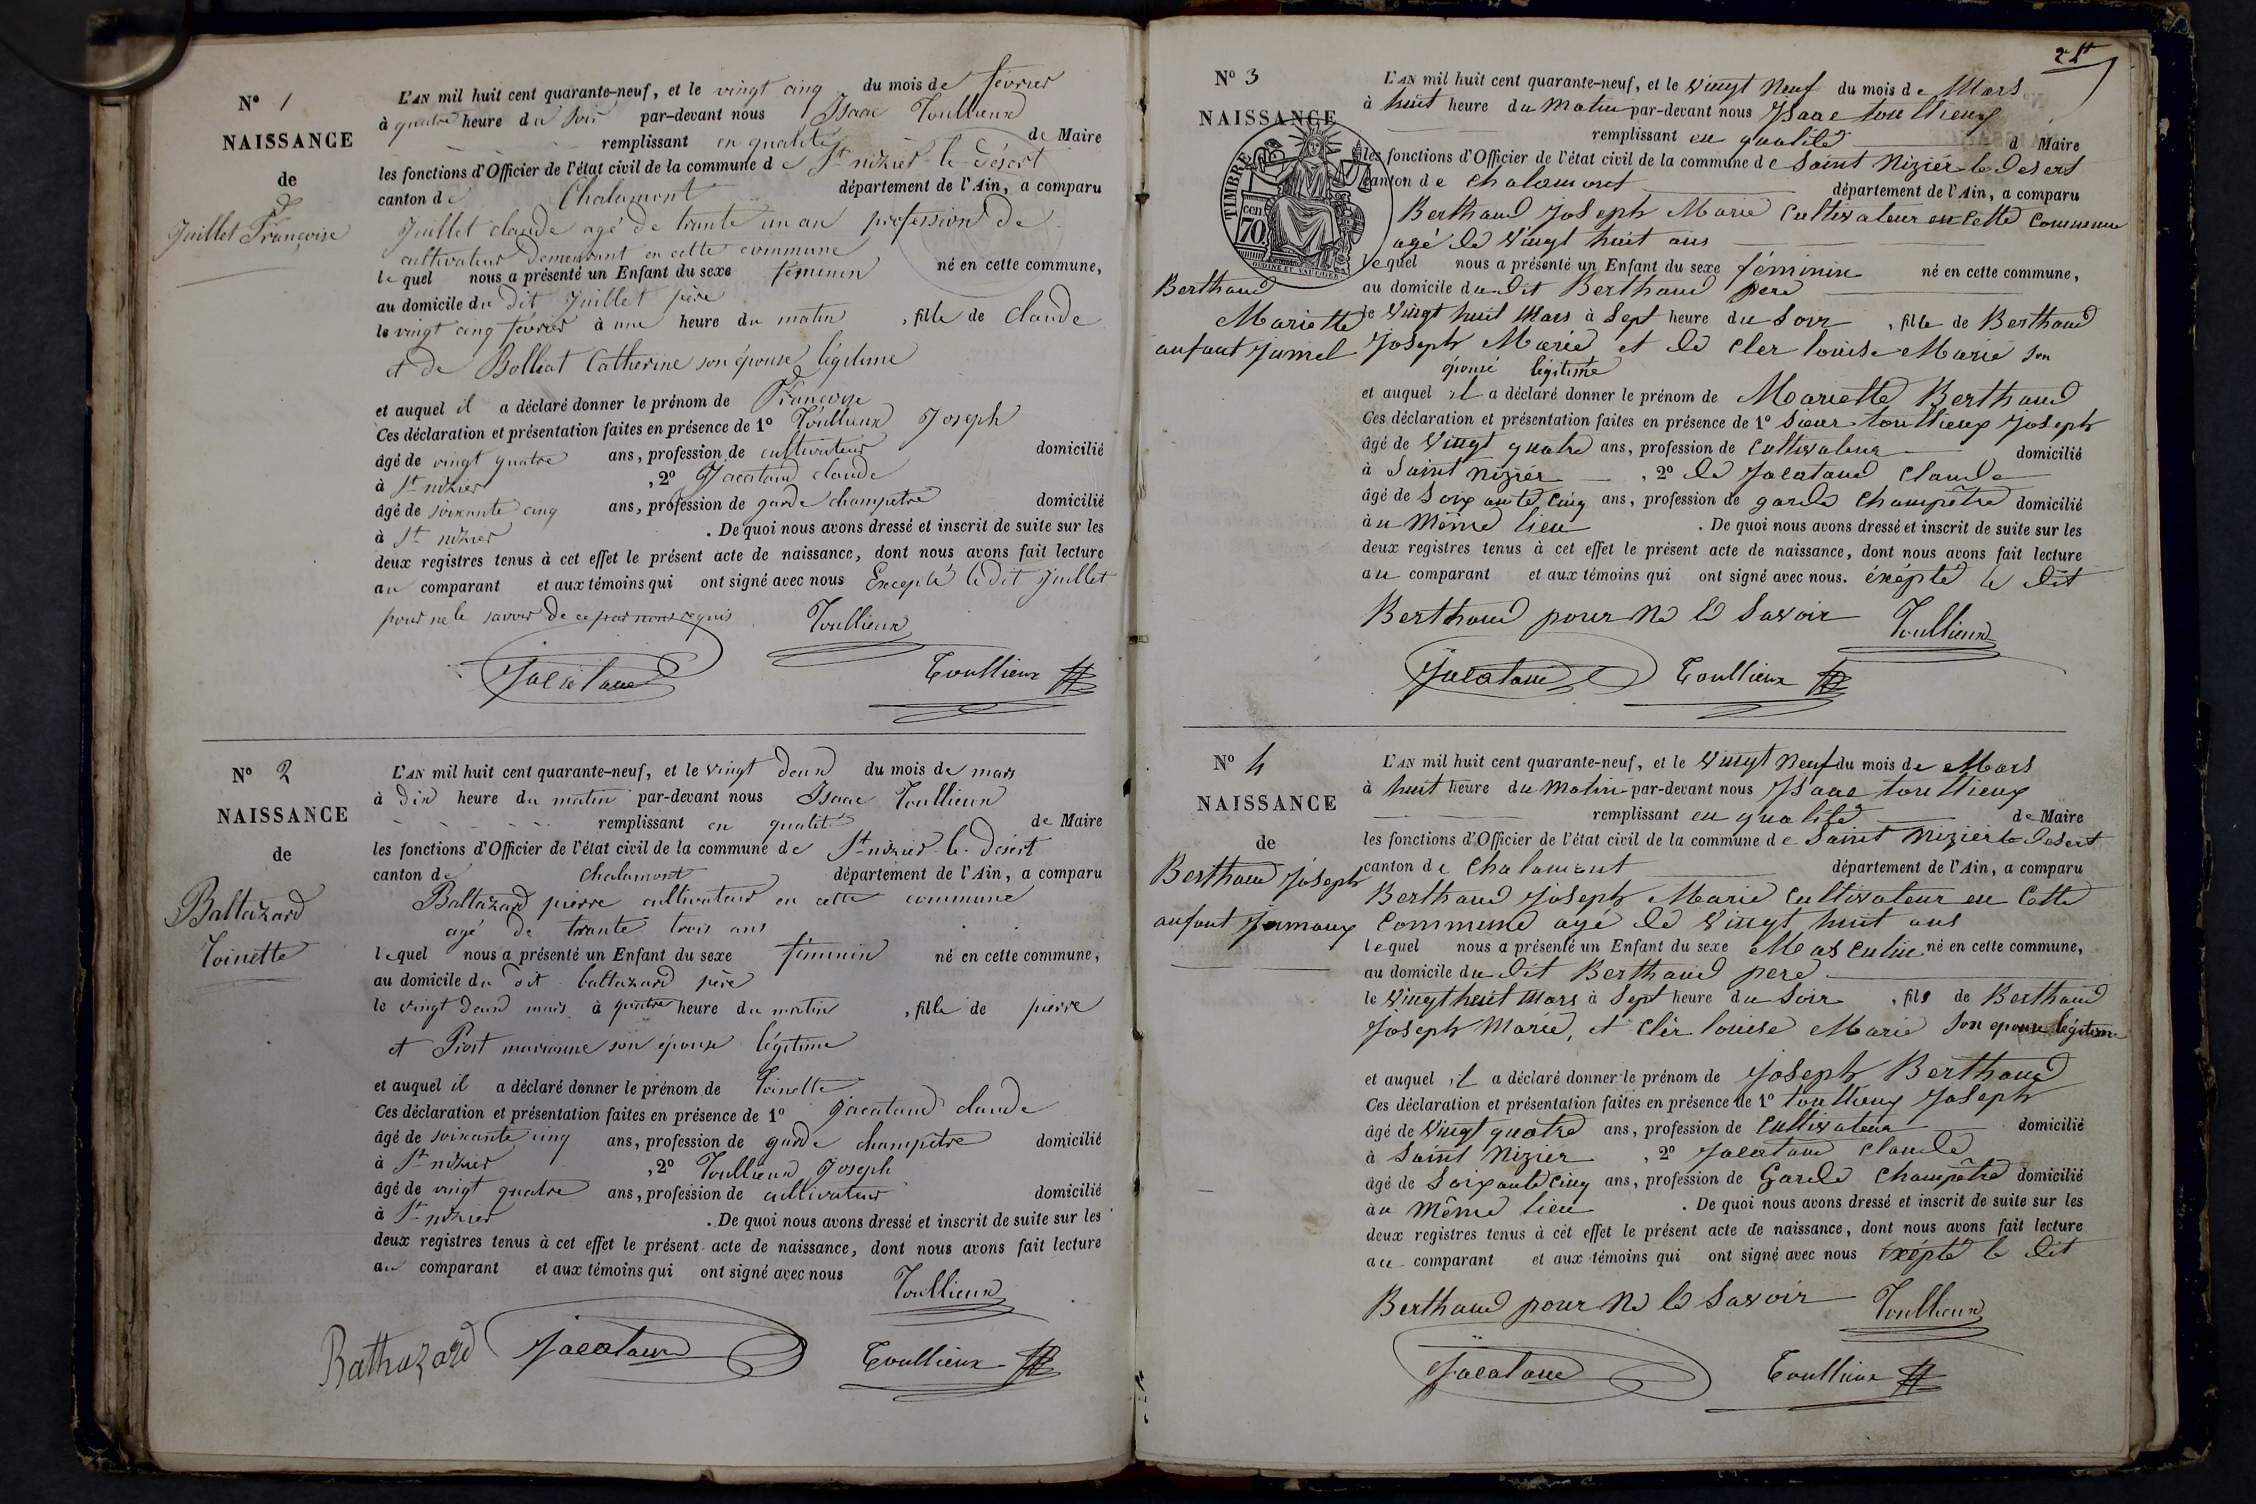 N° 1
NAISSANCE
de
Juillet Françoise
L'AN mil huit cent quarante-neuf, et le vingt cinq du mois de février
à quatre heure du soir par-devant nous Isaac Toullieux
remplissant en qualité de Maire
les fonctions d'Officier de l'état civil de la commune de St nizier-le-désert
canton de Chalamont département de l'Ain, a comparu
Juillet claude agé de trante un an profession de
cultivateur demeurant en cette commune
lequel nous a présenté un Enfant du sexe féminin né en cette commune,
au domicile du dit Juillet père
le vingt cinq février à une heure du matin, fille de claude
et de Bolliat Catherine son épouse légitime
et auquel il a déclaré donner le prénom de Françoise
Ces déclaration et présentation faites en présence de 1° Toullieux Joseph
âgé de vingt quatre ans, profession de cultivateur domicilié
à St nizier, 2° Jacataud claude
âgé de soixante cinq ans, profession de garde champêtre domicilié
à St nizier. De quoi nous avons dressé et inscrit de suite sur les
deux registres tenus à cet effet le présent acte de naissance, dont nous avons fait lecture
au comparant et aux témoins qui ont signé avec nous Excepté le dit Juillet
pour ne le savoir de ce par nous requis
Toullieux
Jacataud Toullieux
N° 2
NAISSANCE
de
Baltazard
Toinette
L'AN mil huit cent quarante-neuf, et le vingt deux du mois de mars
à dix heure du matin par-devant nous Isaac Toullieux
remplissant en qualité de Maire
les fonctions d'Officier de l'état civil de la commune de St nizier-le-désert
canton de chalamont département de l'Ain, a comparu
Baltazard pierre cultivateur en cette commune
agé de trante trois ans
lequel nous a présenté un Enfant du sexe féminin né en cette commune,
au domicile du dit baltazard père
le vingt deux mars à quatre heure du matin, fille de pierre
et Prost marianne son épouse légitime
et auquel il a déclaré donner le prénom de Toinette
Ces déclaration et présentation faites en présence de 1° Jacataud claude
âgé de soixante cinq ans, profession de garde champêtre domicilié
à St nizier, 2° Toullieux Joseph
âgé de vingt quatre ans, profession de cultivateur domicilié
à St nizier. De quoi nous avons dressé et inscrit de suite sur les
deux registres tenus à cet effet le présent acte de naissance, dont nous avons fait lecture
au comparant et aux témoins qui ont signé avec nous
Toullieux
Bathazard Jacataud Toullieux
N° 3
NAISSANCE
TIMBRE
cen
70
OUDINÉ ET SAULNIER
Berthaud
Mariette
anfant Jumel
L'AN mil huit cent quarante-neuf, et le vingt neuf du mois de Mars
à huit heure du Matin par-devant nous Isaac toullieux
remplissant en qualité d Maire
les fonctions d'Officier de l'état civil de la commune de Saint Nizier le Desert
canton de Chalamont département de l'Ain, a comparu
Berthaud Joseph Marie Cultivateur en Cette Commune
agé de Vingt huit ans
lequel nous a présenté un Enfant du sexe féminin né en cette commune,
au domicile du dit Berthaud pere
le Vingt huit Mars à Sept heure du Soir, fille de Berthaud
Joseph Marie et de Cler louise Marie Son
épouse légitime
et auquel il a déclaré donner le prénom de Mariette Berthaud
Ces déclaration et présentation faites en présence de 1° Sieur toullieux Joseph
âgé de Vingt quatre ans, profession de Cultivateur domicilié
à Saint Nizier, 2° de Jacataud Claude
âgé de Soixante Cinq ans, profession de garde Champêtre domicilié
àu Même lieu. De quoi nous avons dressé et inscrit de suite sur les
deux registres tenus à cet effet le présent acte de naissance, dont nous avons fait lecture
au comparant et aux témoins qui ont signé avec nous. éxépté le dit
Berthaud pour Ne le Savoir
Toullieux
Jacataud Toullieux
N° 4
NAISSANCE
de
Berthaud Joseph
anfant Jumaux
L'AN mil huit cent quarante-neuf, et le Vingt Neuf du mois de Mars
à huit heure du Matin par-devant nous Isaac toullieux
remplissant en qualité de Maire
les fonctions d'Officier de l'état civil de la commune de Saint Nizier le Desert
canton de Chalamont département de l'Ain, a comparu
Berthaud Joseph Marie Cultivateur en Cette
Commune agé de Vingt huit ans
lequel nous a présenté un Enfant du sexe Masculin né en cette commune,
au domicile du dit Berthaud pere
le Vingt huit Mars à Sept heure du Soir, fils de Berthaud
Joseph Marie, et Clèr louise Marie Son epouse légitime
et auquel il a déclaré donner le prénom de Joseph Berthaud
Ces déclaration et présentation faites en présence de 1° toullieux Joseph
âgé de Vingt quatre ans, profession de Cultivateur domicilié
à Saint Nizier, 2° Jacataud Claude
âgé de Soixante Cinq ans, profession de Garde Champêtre domicilié
àu Même lieu. De quoi nous avons dressé et inscrit de suite sur les
deux registres tenus à cet effet le présent acte de naissance, dont nous avons fait lecture
au comparant et aux témoins qui ont signé avec nous éxépté le dit
Berthaud pour Ne le Savoir
Toullieux
Jacataud Toullieux